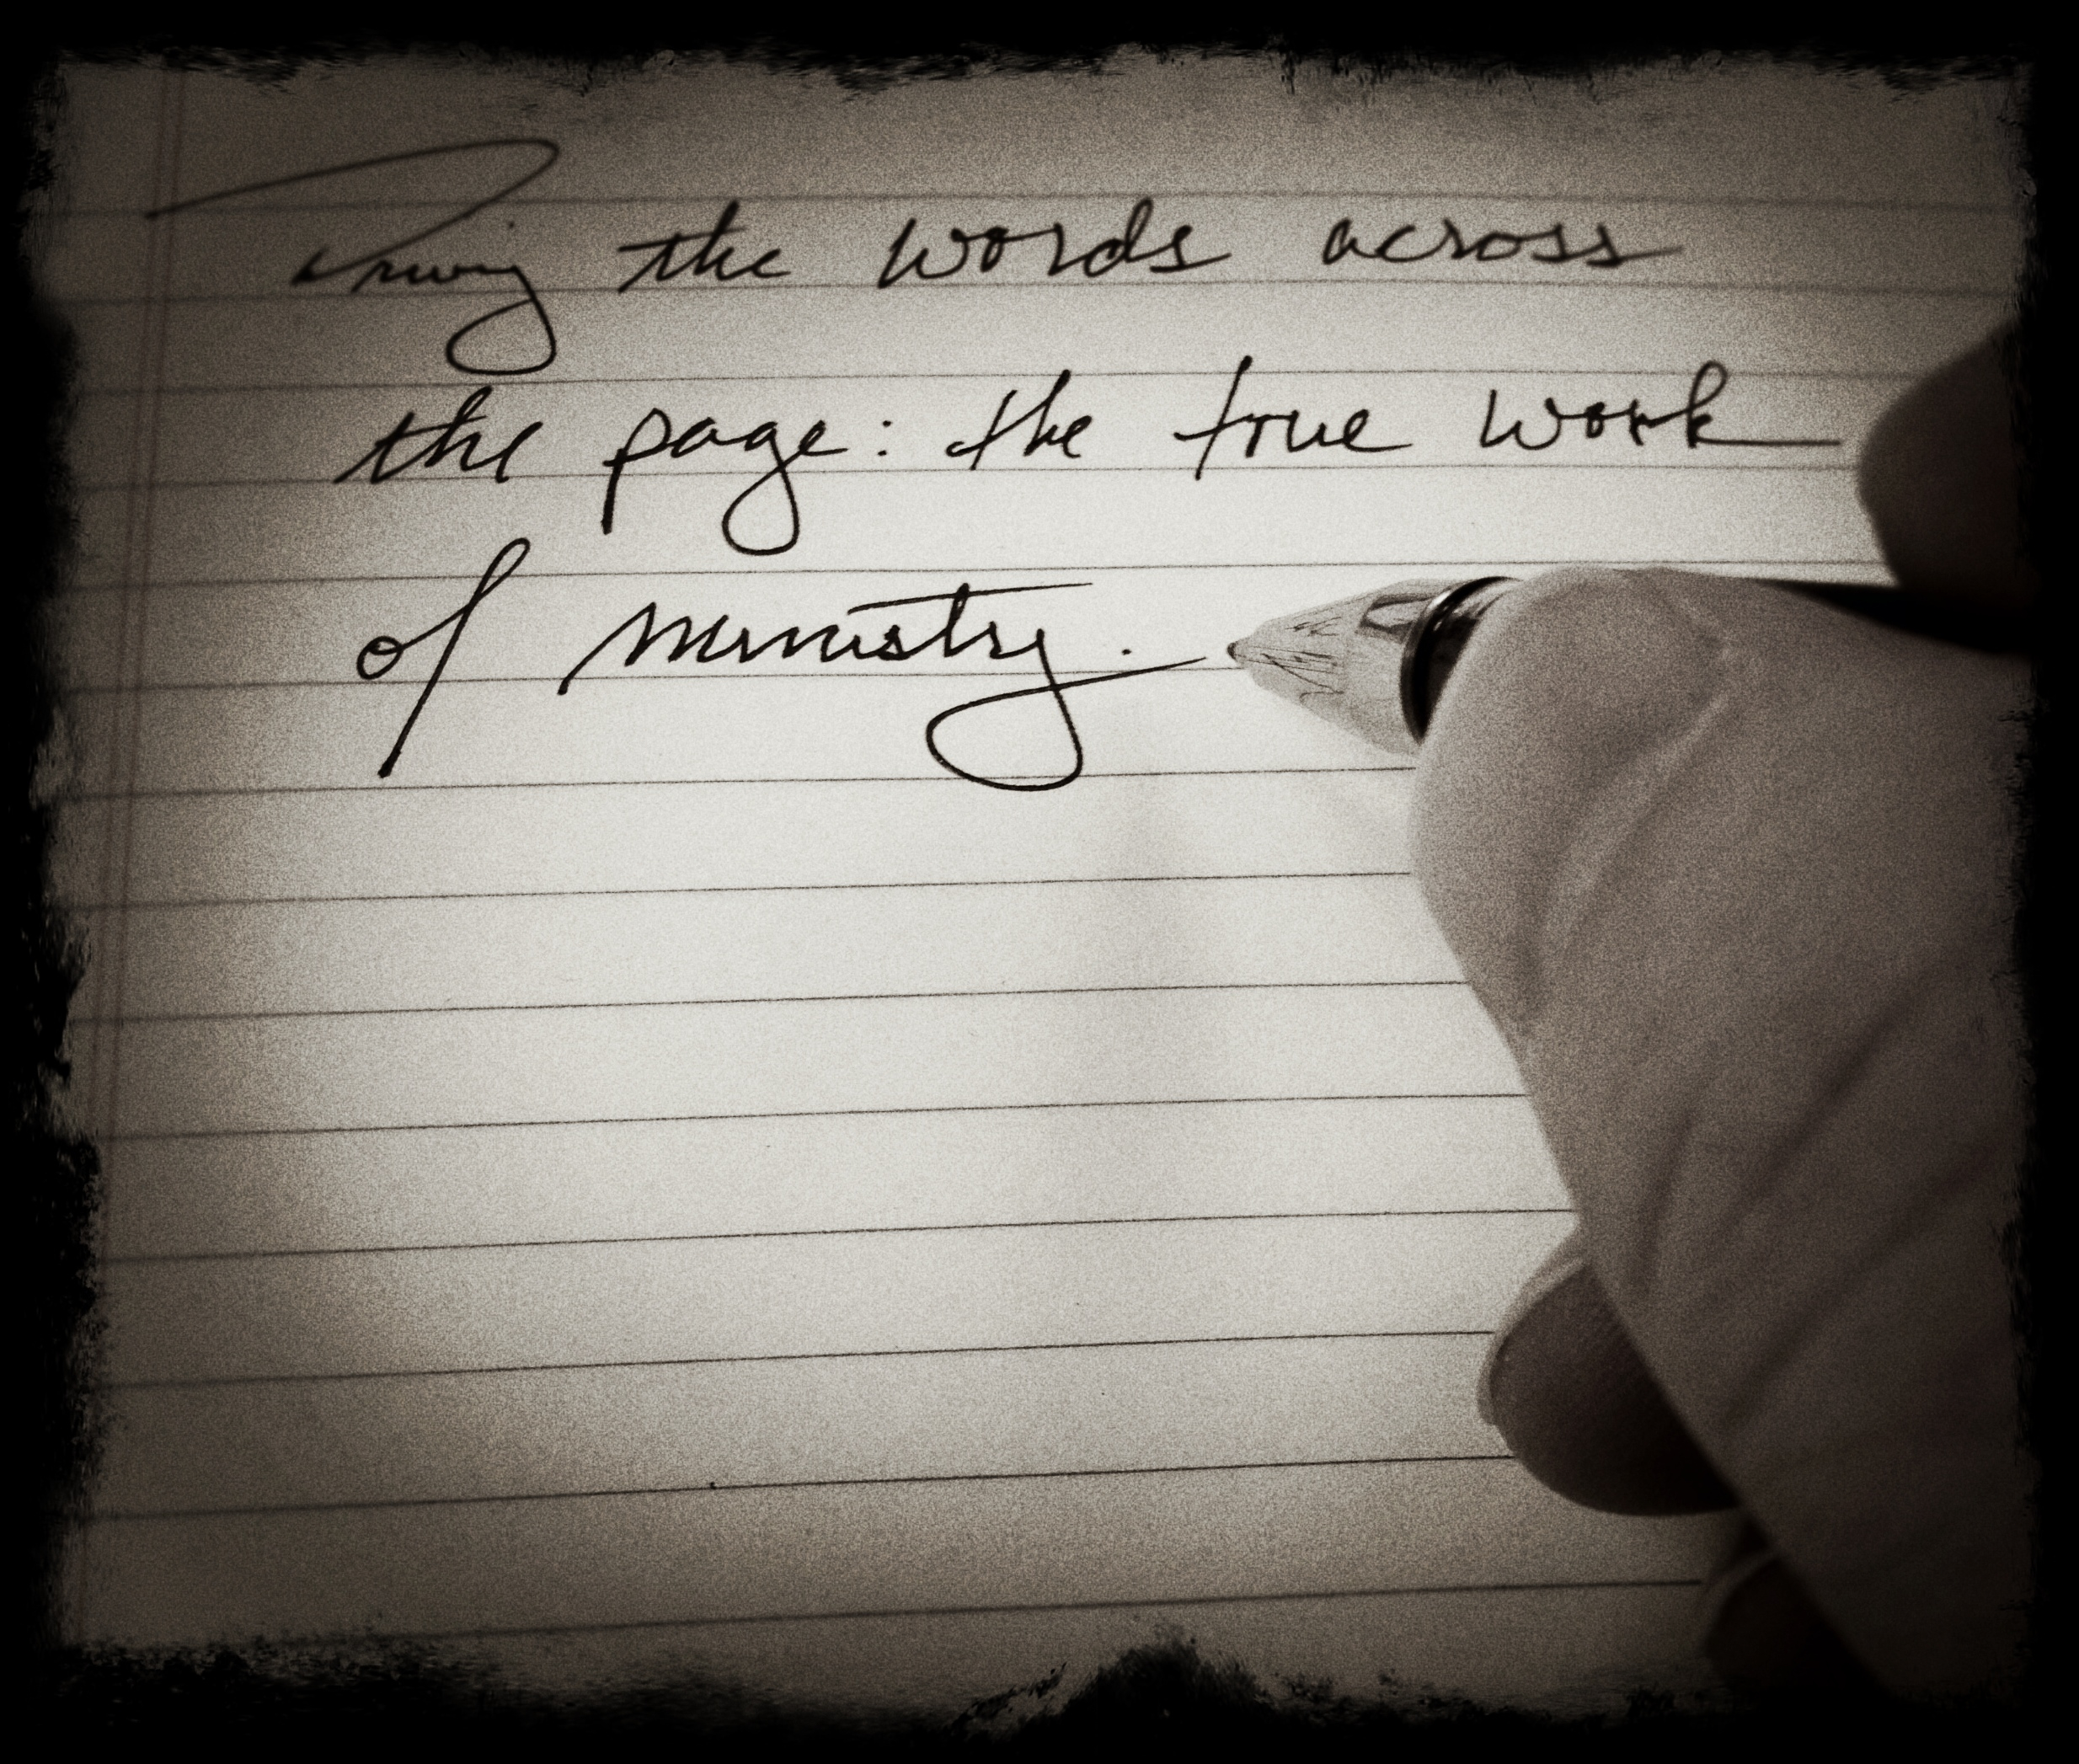 the words across
the page: the true work
of ministry.